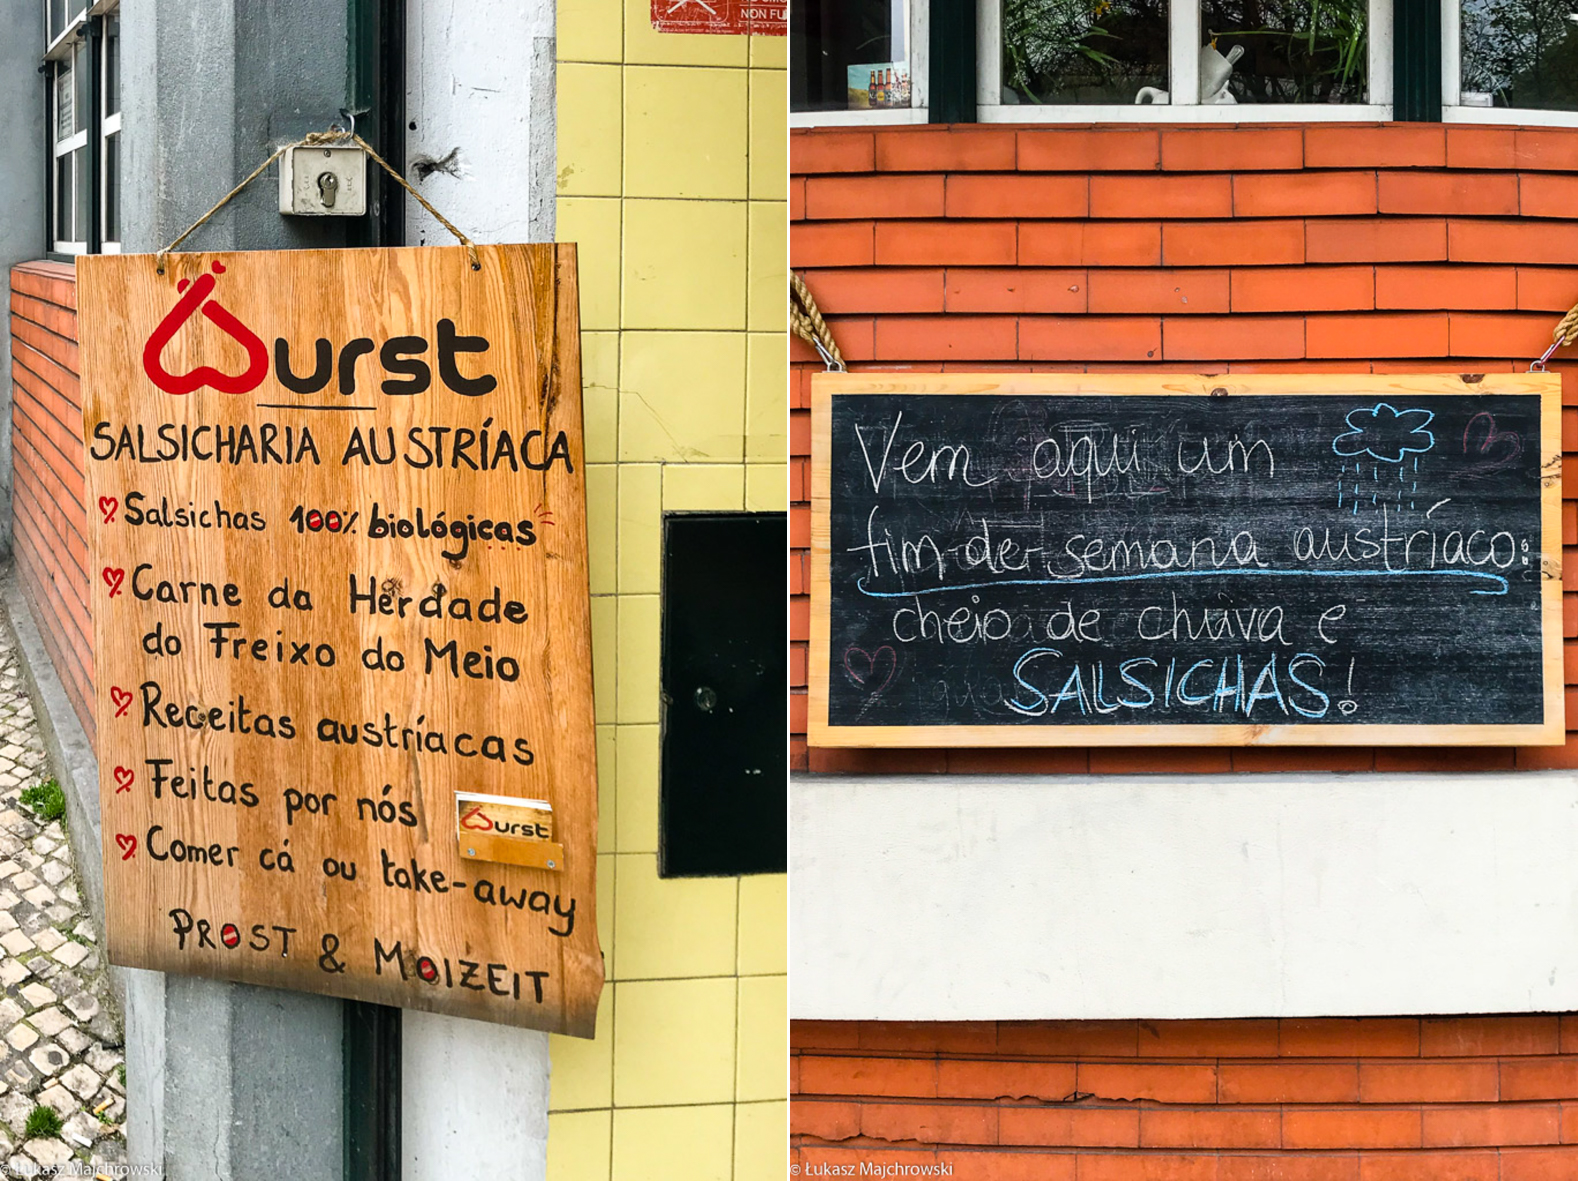 NON FU
Wurst
SALSICHARIA AUSTRÍACA
Salsichas 100% biológicas
Carne da Herdade
do Freixo do Meio
Receitas austríacas
Feitas por nós
Wurst
Comer cá ou take-away
PROST & MOIZEIT
© Łukasz Majchrowski
Vem aqui um
fim-de-semana austríaco:
cheio de chuva e
SALSICHAS!
© Łukasz Majchrowski